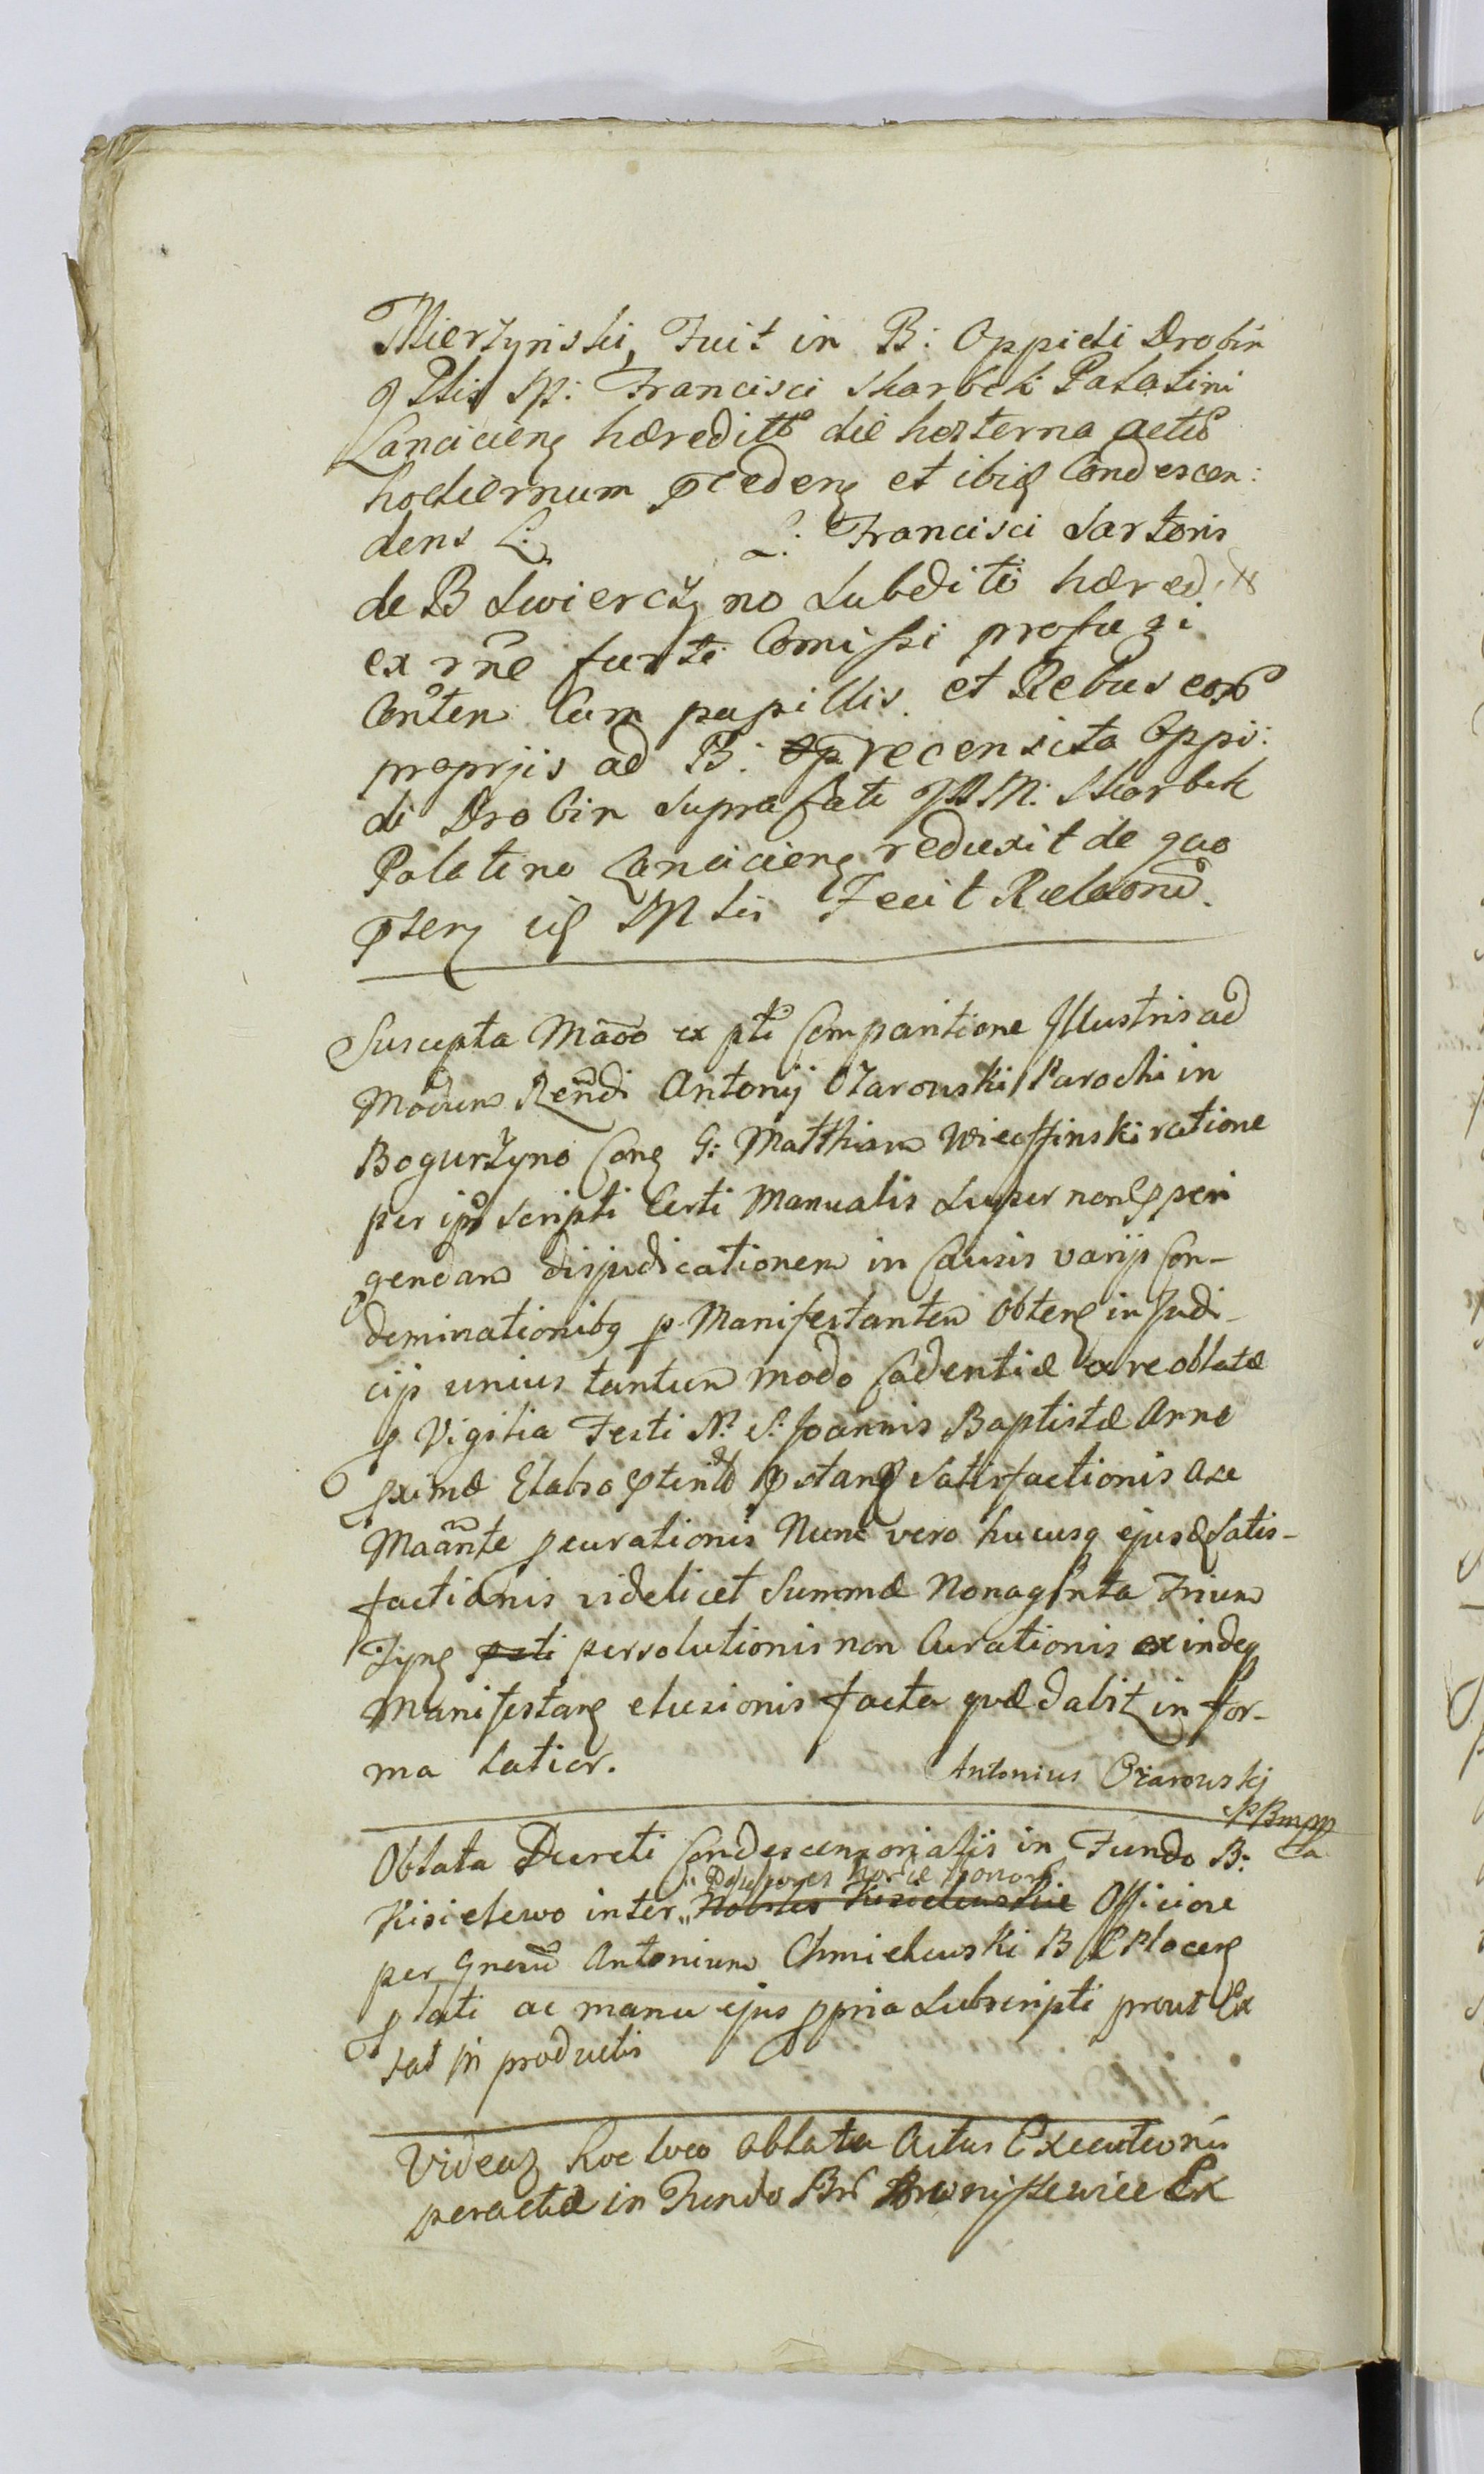 Mierzynski, Fuit in B: Oppidi Drobin
Mp: Francisci Skarbek Palatini
Lanciciens hæreditt die hesterna actu
hodiernum præcedens et ibiq Condescen:
dens L: L: Francisci Sartoris
de B Swierczyno Subditi hæred
ex rne furti Comissi profugi
Conten Cum pupillis et Rebus eor
proprijs ad B: recensita Oppi:
di Drobin Suprafati JW M: Skarbek
Palatino Lanciciens reduxit de quo
Fecit Relaonem.
Suscepta Maõo ex pte Comparitione Illustris ad
Modum Rendi Antonij Ozarowski Parochi in
Bogurzyno Cong G: Matthiam ratione
per ipm Scripti Certi Manualis Super non
gendam disjudicationem in Causis varijs Con-
deminationibq p Manifestantem Obtens in Judi-
cijs unius tantum modo Cadentiæ ex re oblatæ
p Vigilia Festi N: S: Joannis Baptistæ Anne
pximæ Elabso Satisfactionis a se
Maãnte pcurationis Nunc vero hucusq ejusd Satis-
factionis videlicet Summæ Nonaginta Trium
Tyns persolutionis non Curationis exindeq
Manifestans elusionis facta quæ dabit in for-
ma latior.
Antonius Ożarowski
PBmpp
Oblata Decreti Condescensorialis in Fundo B:
honor
Kisielewo inter Nobiles Kisielewskie Officiose
per Gnerum Antonium Chmielewski B C Plocens
lati ac manu ejus ppria Subscripti prout Ex
tat in productis
Videaz hoc loco oblata Actus Executionis
peractæ in Fundo Bnr Broniszewice Ex